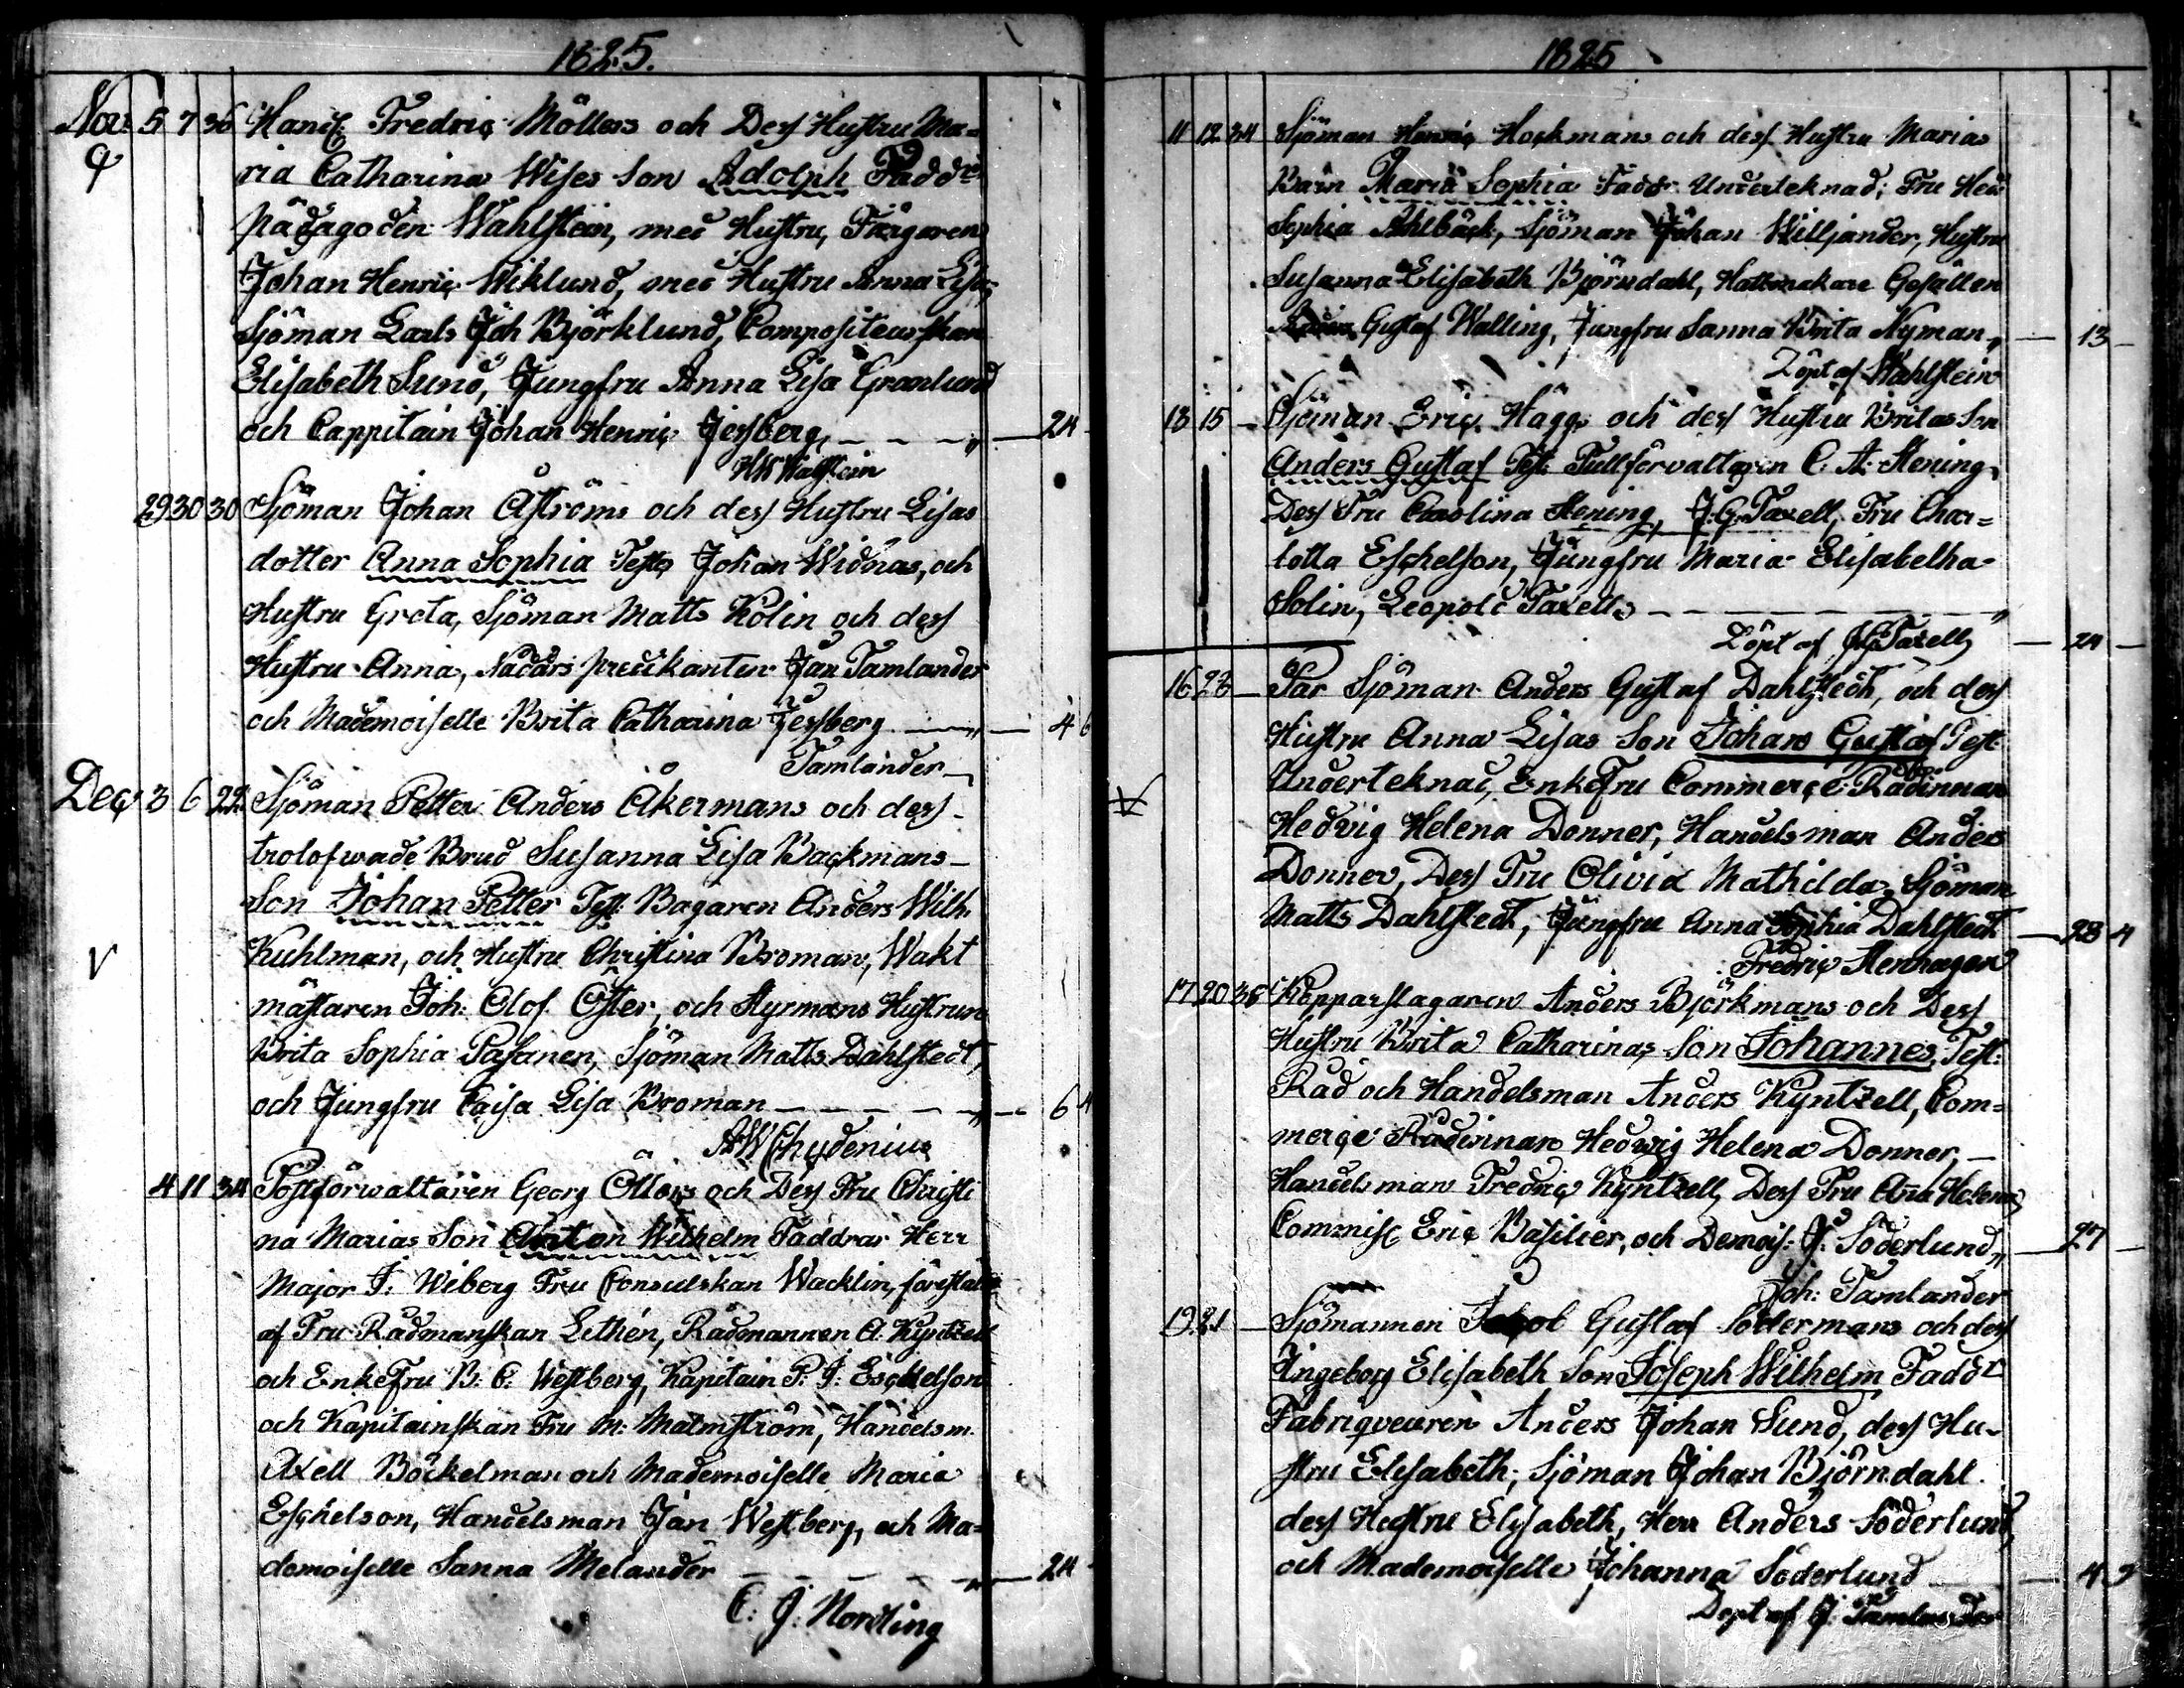 1825.
Nov. 5 7 36 Handl. Fredric Möllers och Dess Hustru Ma=
ria Catharina Wises Son Adolph Faddr
pädagogen Wahlstein, med Hustru, Färgaren
Johan Henric Wiklund, med Hustru Anna Lisa,
Sjöman Carls Joh Björklund, Compositeurskan
Elisabeth Sund, Jungfru Anna Lisa Granlund
och Cappitain Johan Henric Jessberg, — 24
HW Wahlstein
29 30 30 Sjöman Johan Åströms och dess Hustru Lisas
dotter Anna Sophia Test. Johan Widnas, och
Hustru Greta, Sjöman Matts Kolin och dess
Hustru Anna, Nådårs predikanten Jan Tamlander
och Mademoiselle Brita Catharina Jessberg — 4 6
Tamlander
Dec 3 6 22 Sjöman Petter Anders Åkermans och dess
trolofwade Brud Susanna Lisa Backmans
Son Johan Petter Test. Bagaren Anders Wilh.
Kuhlman, och Hustru Christina Broman, Wakt
mästaren Joh: Olof Öster, och Styrmans Hustrun
Brita Sophia Pasanen, Sjöman Matts Dahlstedt,
och Jungfru Caisa Lisa Broman — 6 4
AW Chydenius
4 11 34 Postförwaltaren Georg Öllers och Dess Fru Christi
na Marias Son Anton Wilhelm Faddrar Herr
Major J. Wiberg Fru Consulskan Wacklin, föreställd
af Fru Rådmanskan Lethén, Rådmannen A. Kyntzell
och EnkeFru B. C. Westberg, Kapitain P. J. Eschelson
och Kapitainskan Fru M: Malmström, Handelsm.
Axell Böckelman och Mademoiselle Maria
Eschelson, Handelsman Jan Westberg, och Ma=
demoiselle Sanna Melander — 24
C. J. Nordling
1825
11 12 34 Sjöman Henric Hockmans och dess Hustru Marias
Barn Maria Sophia Faddr Undertecknad; Fru Hed
Sophia Ahlbäck, Sjöman Johan Williander, Hustru
Susanna Elisabeth Björndahl, Hattmakare Gesällen
Gustaf Walling, Jungfru Sanna Brita Nyman, — 13 —
Döpt af Wahlstein
13 15 — Sjöman Eric Hägg och dess Hustru Britas Son
Anders Gustaf Test: Tullförvaltaren C. A. Stening,
Dess Fru Carolina Stening, J. G. Taxell, Fru Char=
lotta Eschelson, Jungfru Maria Elisabetha
Solin, Leopold Taxell —
Döpt af JG Taxell — 24 —
16 22 — Par Sjöman Anders Gustaf Dahlstedt, och dess
Hustru Anna Lisas Son Johan Gustaf Test
Undertecknad, EnkeFru Commerce Rådinnan
Hedvig Helena Donner, Handelsman Anders
Donner, Dess Fru Olivia Mathilda, Sjöman
Matts Dahlstedt, Jungfru Anna Sophia Dahlstedt — 28 4
Fredric Stenhagen
17 20 38 Kopparslagaren Anders Björkmans och Dess
Hustru Brita Catharinas Son Johannes, Test:
Råd och Handelsman Anders Kyntzell, Com=
merce Rådinnan Hedwig Helena Donner,
Handelsman Fredric Kyntzell, Dess Fru Ana Helena,
Commiss Eric Basilier, och Demois: J. Söderlund, — 27 —
Joh: Tamlander
19 21 — Sjömannen Jacob Gustaf Södermans och dess
Ingeborg Elisabeth Son Joseph Wilhelm Faddr
Fabriqveuren Anders Johan Sund, dess Hu-
stru Elisabeth; Sjöman Johan Björndahl
dess Hustru Elisabeth, Herr Anders Söderlund,
och Mademoiselle Johanna Söderlund — 4 9
Döpt af J. Tamlander